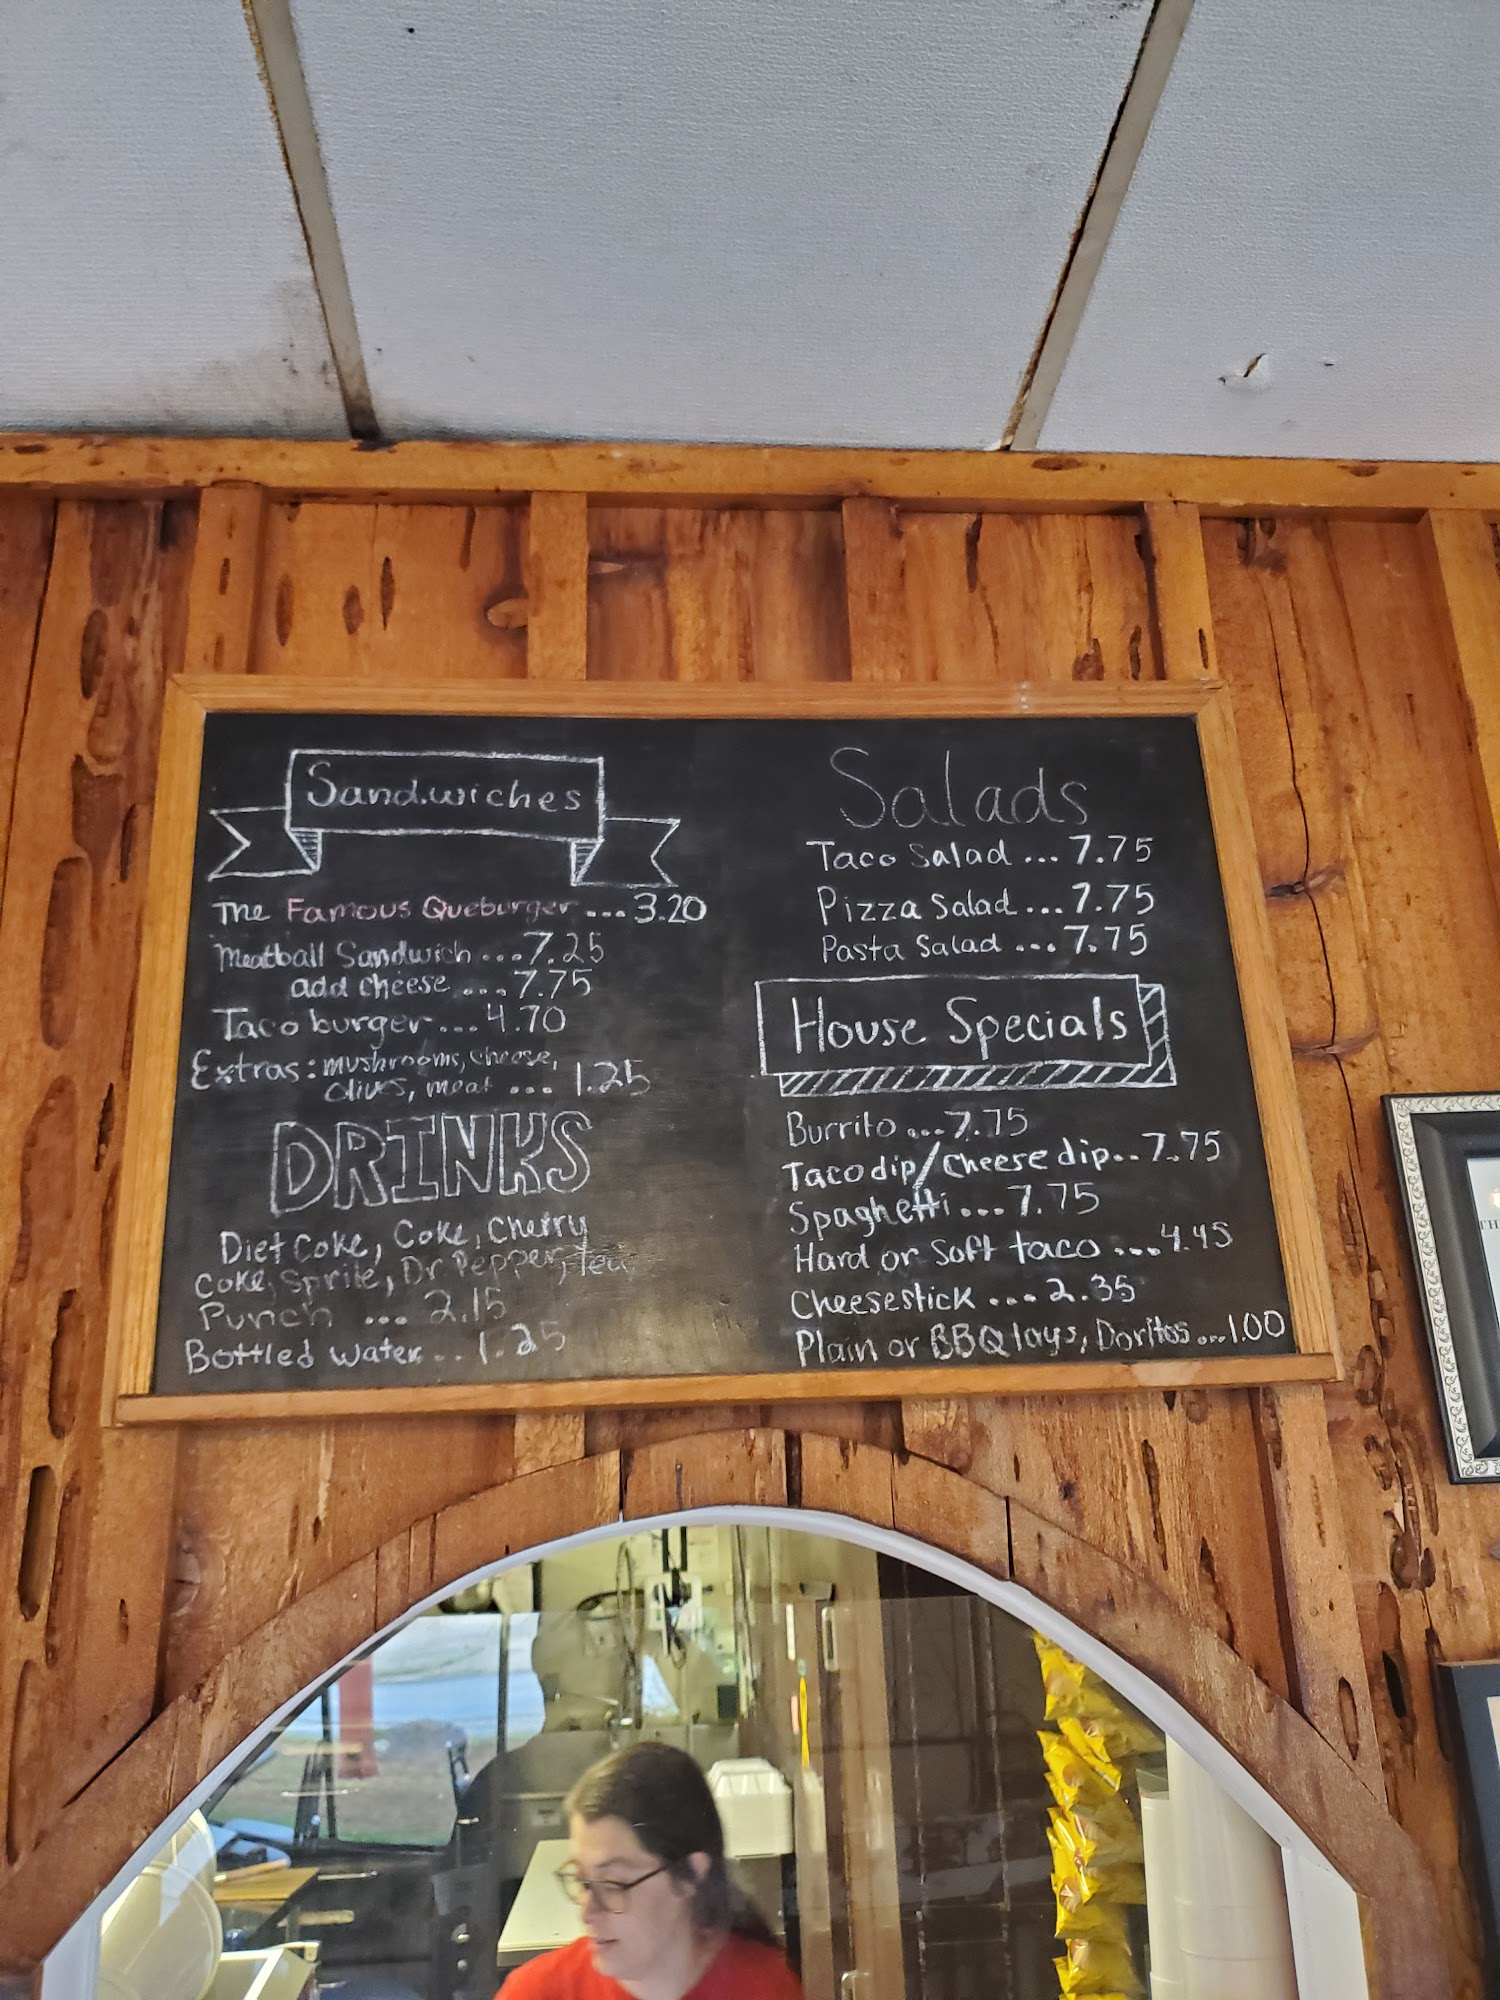 Sandwiches
The Famous Queburger...3.20
Meatball Sandwich...7.25
add cheese....7.75
Taco burger...4.70
Extras: mushrooms, cheese,
olives, meat ...1.25
DRINKS
Diet Coke, Coke, Cherry
Coke, Sprite, Dr Pepper, Tea,
Punch ...2.15
Bottled Water...1.25
Salads
Taco Salad...7.75
Pizza Salad...7.75
Pasta Salad...7.75
House Specials
Burrito...7.75
Taco dip/Cheese dip..7.75
Spaghetti...7.75
Hard or Soft taco...4.45
Cheesestick...2.35
Plain or BBQ lays, Doritos...1.00